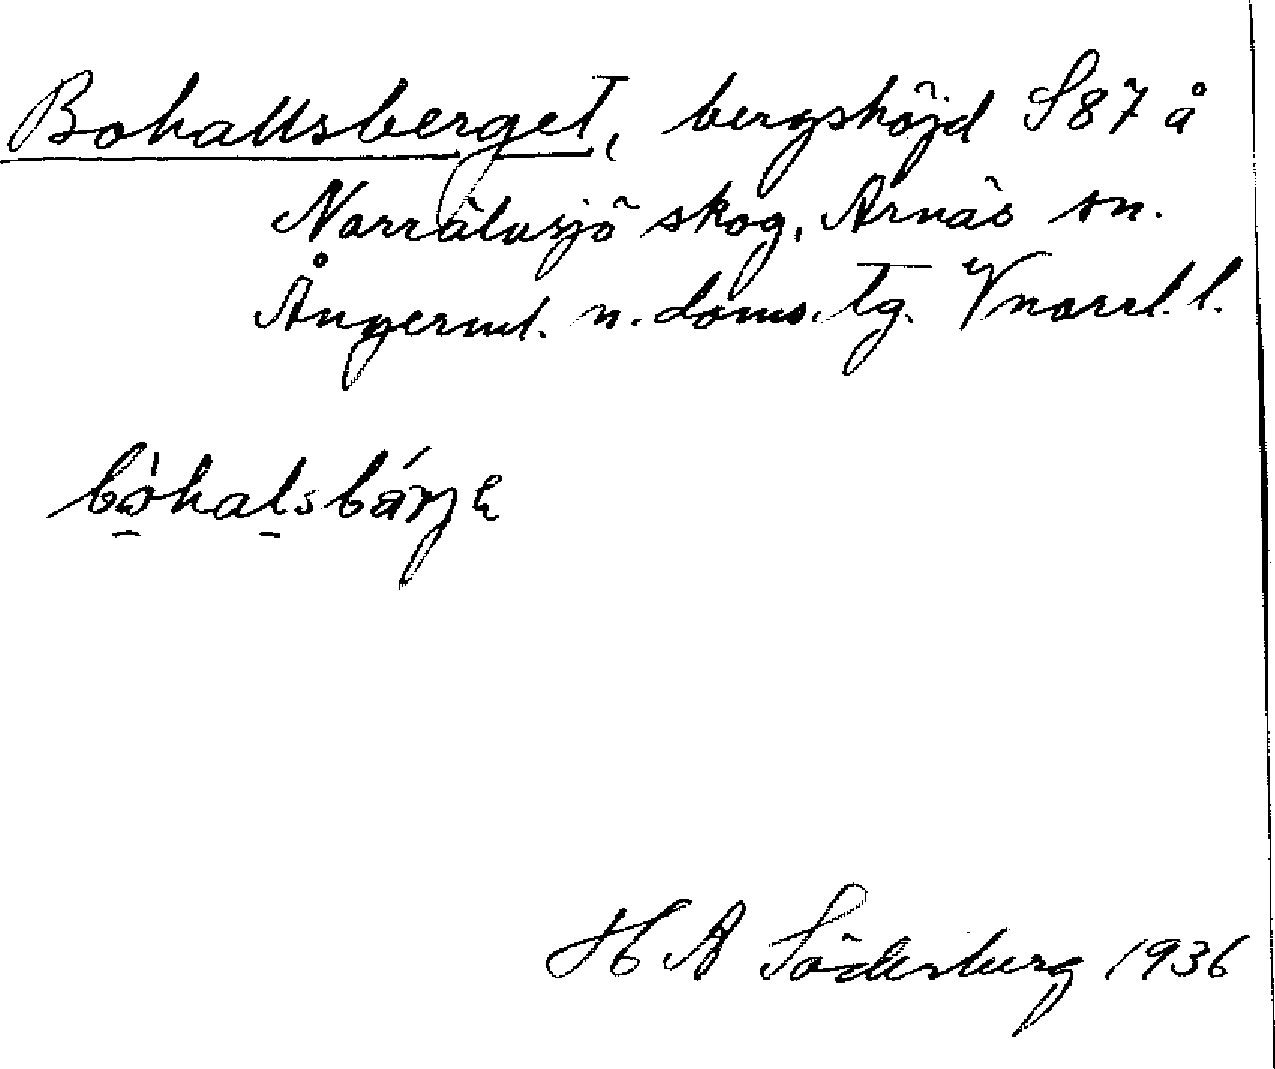 Bohallsberget, bergshöjd S 87 å
Norrälvsjö skog, Arnäs sn.
Ångerml. n. doms. tg. Vnorrl. l.
bòhalsbárjə
H A Söderberg 1936